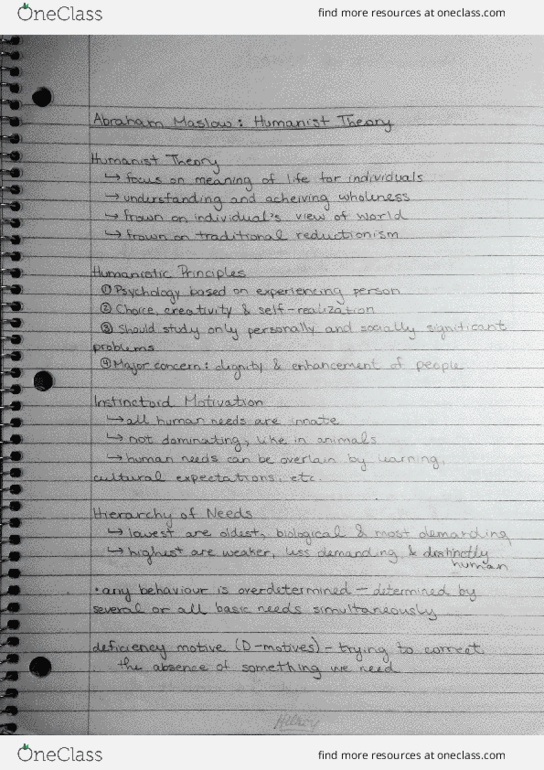 OneClass
find more resources at oneclass.com
Abraham Maslow: Humanist Theory
Humanist Theory
↳ focus on meaning of life for individuals
→ understanding and acheiving wholeness
↳ frown on individual's view of world
↳ frown on traditional reductionism
Humanistic Principles
① Psychology based on experiencing person
② Choice, creativity & self-realization
③ Should study only personally and socially significant
problems
④ Major concern: dignity & enhancement of people
Instinctoid Motivation
↳ all human needs are innate
↳ not dominating, like in animals
↳ human needs can be overlain by learning,
cultural expectations, etc.
Hierarchy of Needs
↳ lowest are oldest, biological & most demanding
↳ highest are weaker, less demanding & distinctly
human
• any behaviour is overdetermined – determined by
several or all basic needs simultaneously
deficiency motive (D-motives) – trying to correct
the absence of something we need
Hilroy
OneClass
find more resources at oneclass.com